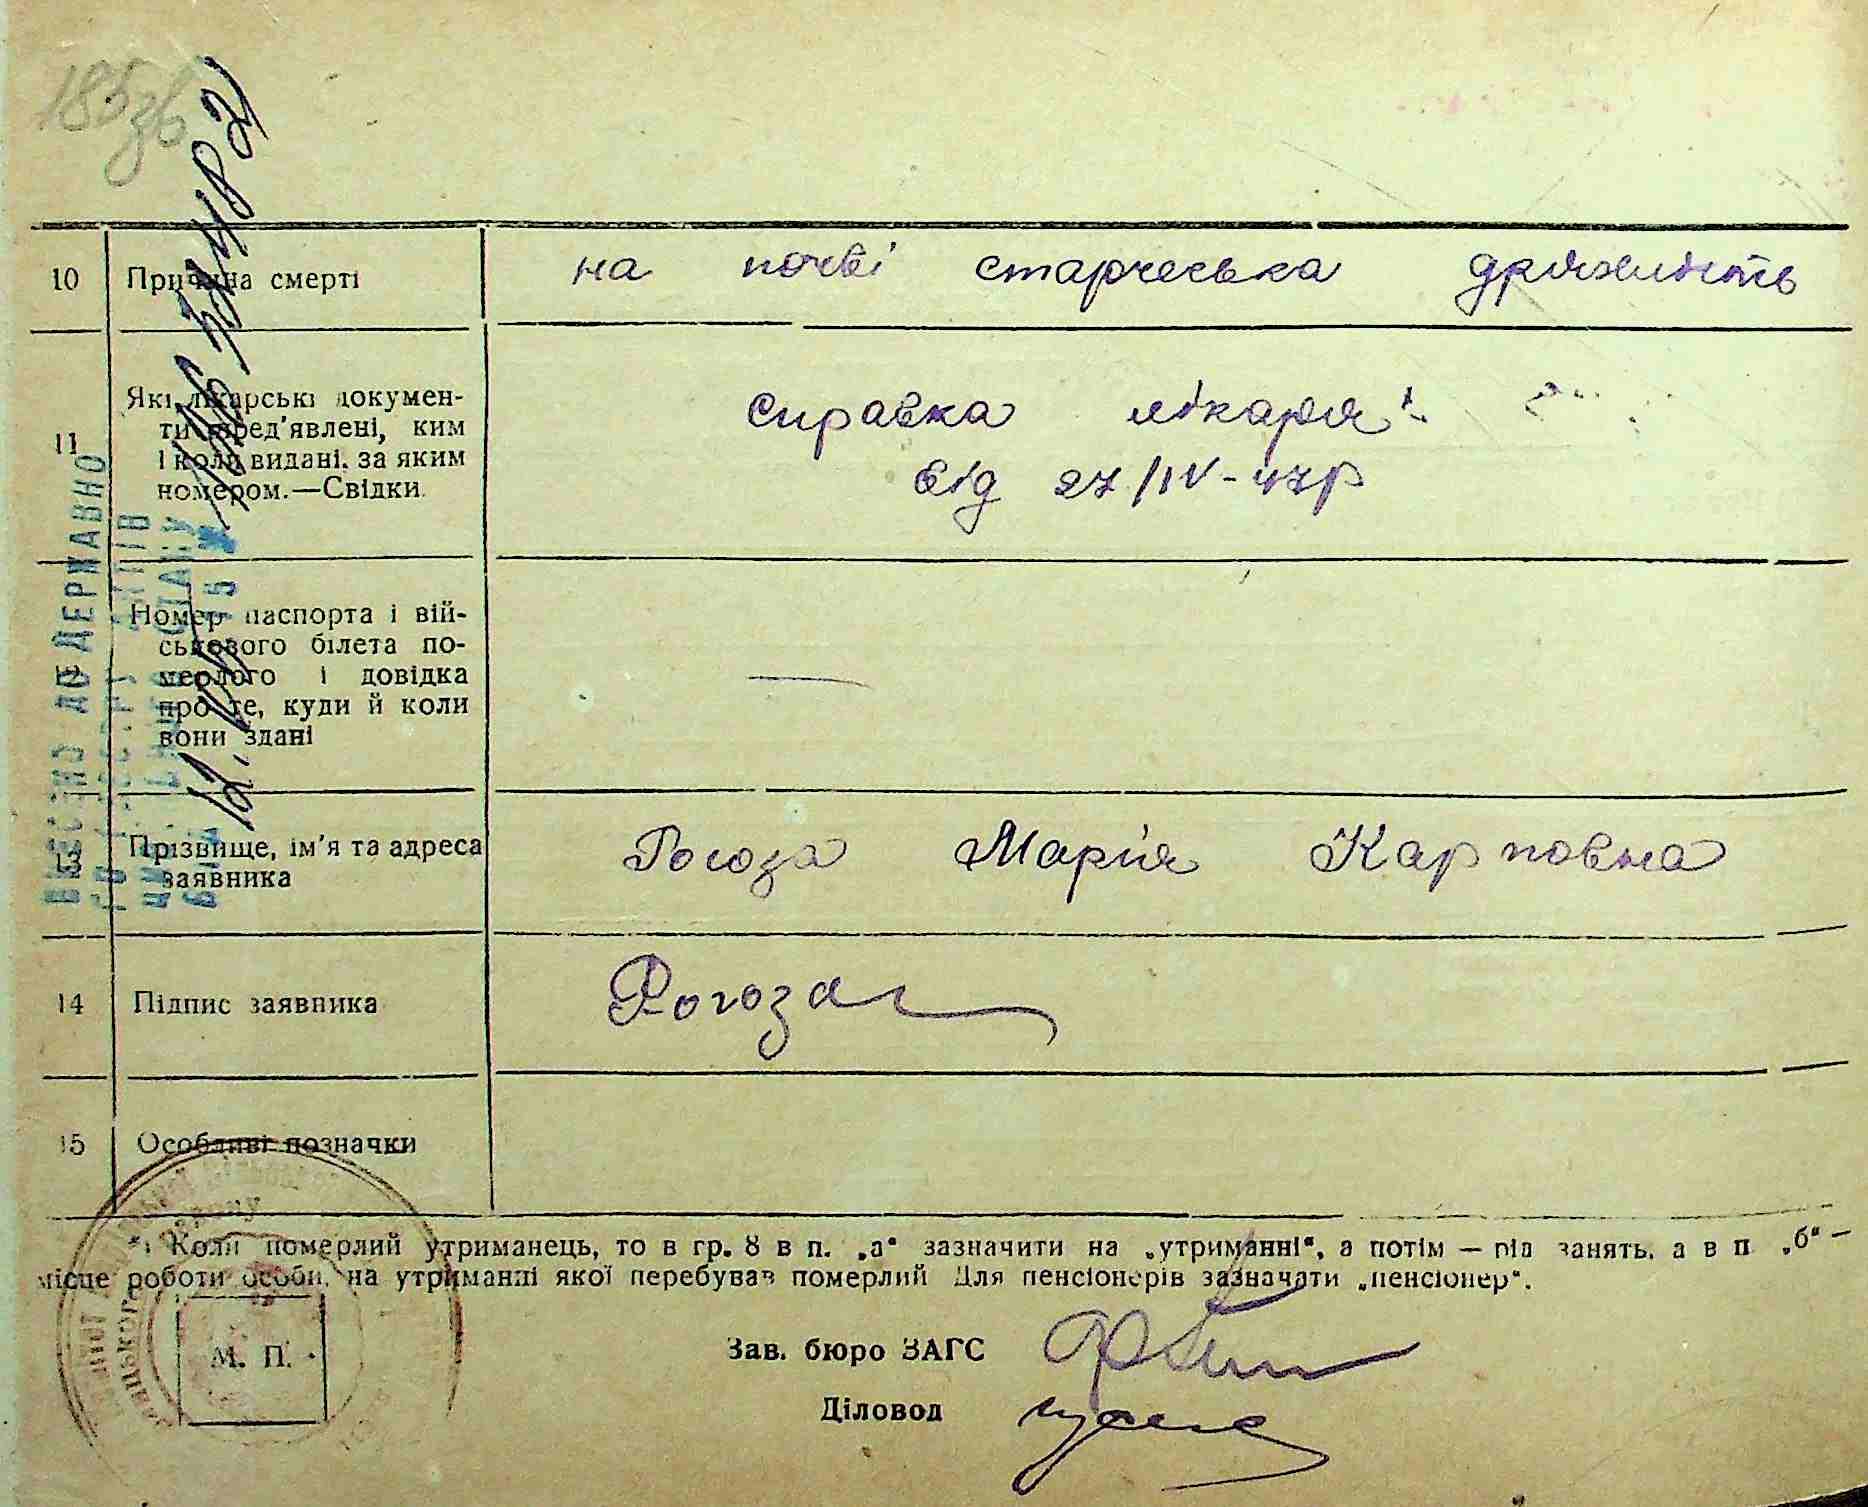 185зв
10 Причина смерті на почві старческа дряхлість
11 Які лікарські докумен-
ти пред'явлені, ким
і коли видані, за яким
номером.—Свідки
справка лікаря
від 27/IV-47р
12 Номер паспорта і вій-
ськового білета по-
мерлого і довідка
про те, куди й коли
вони здані —
13 Прізвище, ім'я та адреса
заявника
Рогоза Марія Карповна
14 Підпис заявника Рогоза
15 Особливі позначки
*) Коли померлий утриманець, то в гр. 8 в п. „а“ зазначити на „утриманні“, а потім — рід занять, а в п. „б“ —
місце роботи особи, на утриманні якої перебував померлий. Для пенсіонерів зазначати „пенсіонер“.
М. П.
Зав. бюро ЗАГС
Діловод
ВНЕСЕНО ДО ДЕРЖАВНО